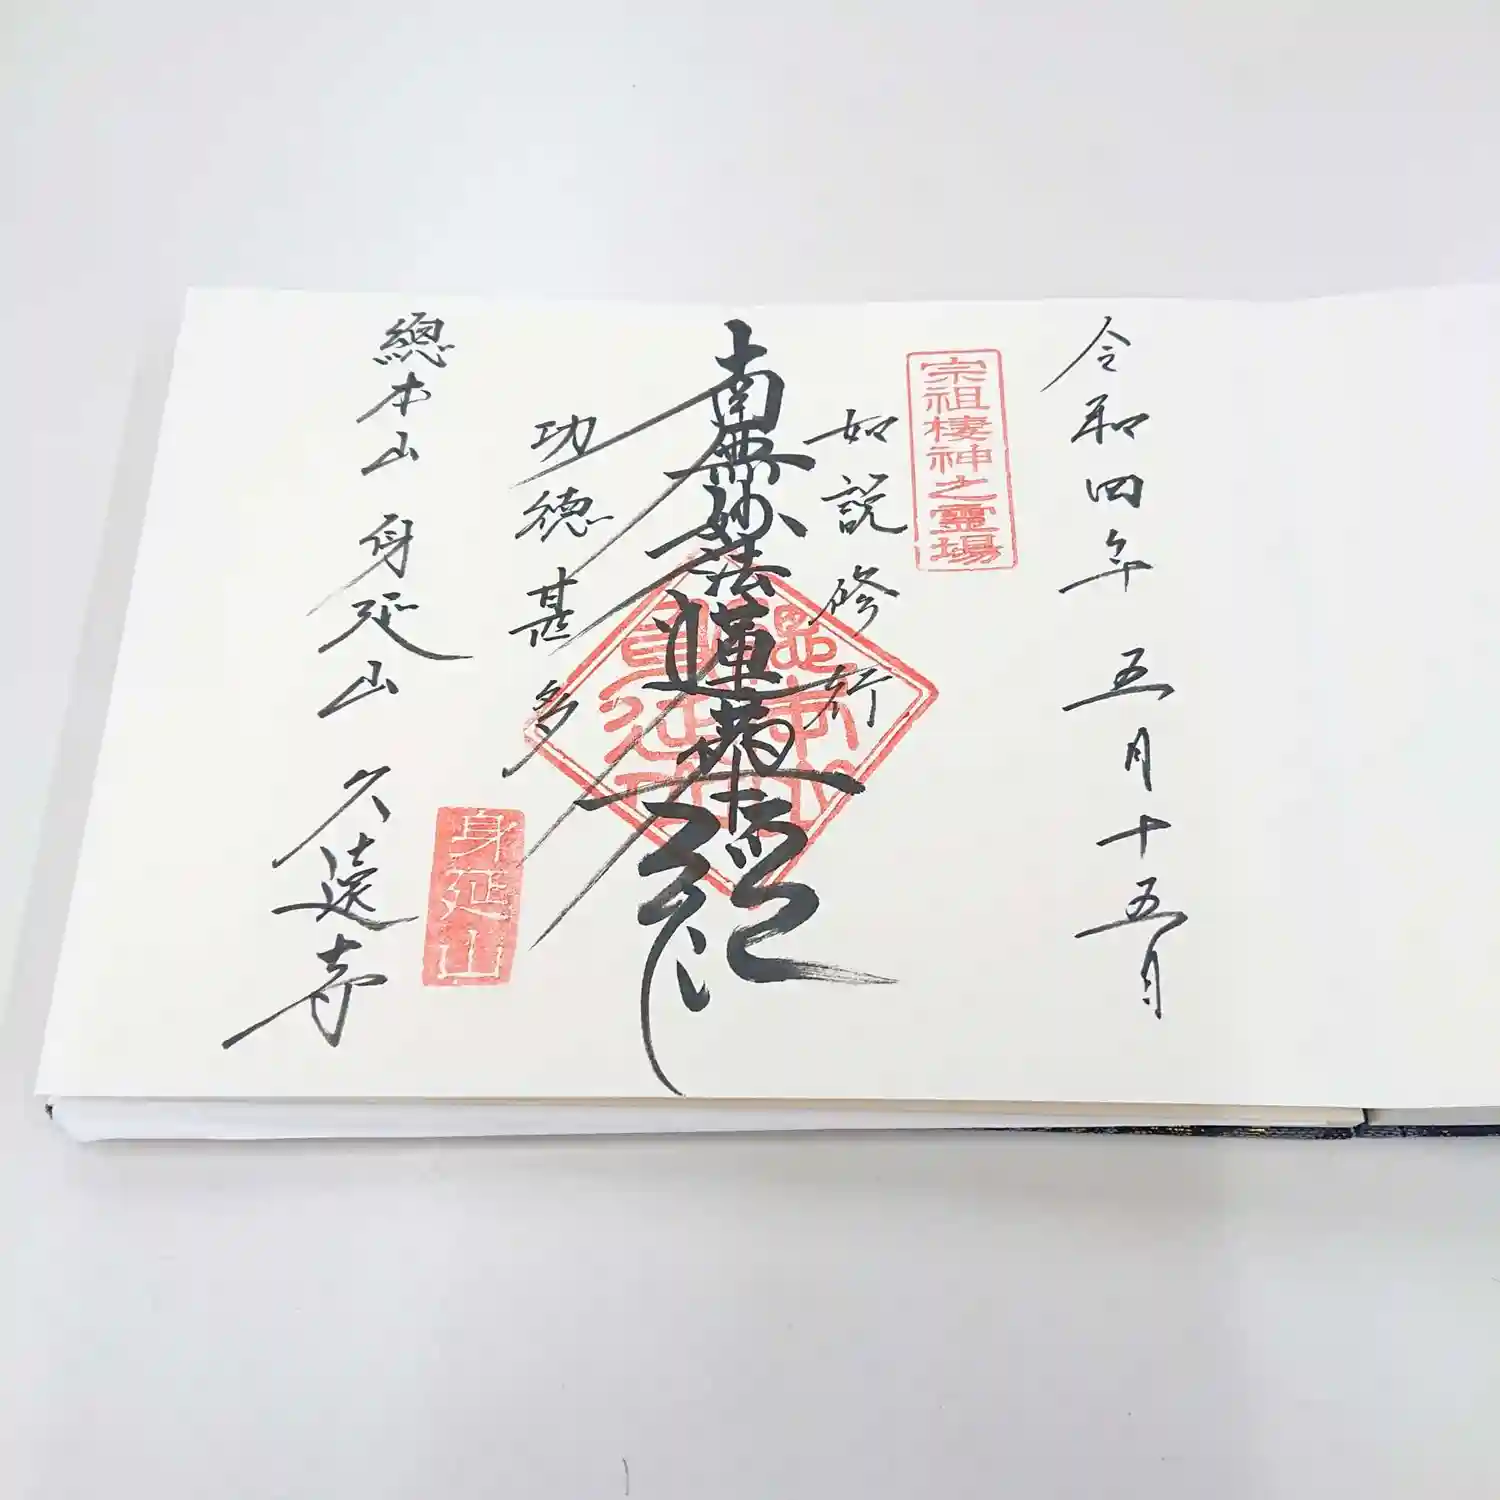 令和四年五月十五日
宗祖棲神之霊場
如説修行
南無妙法蓮華経
功徳甚多
身延山
總本山身延山久遠寺